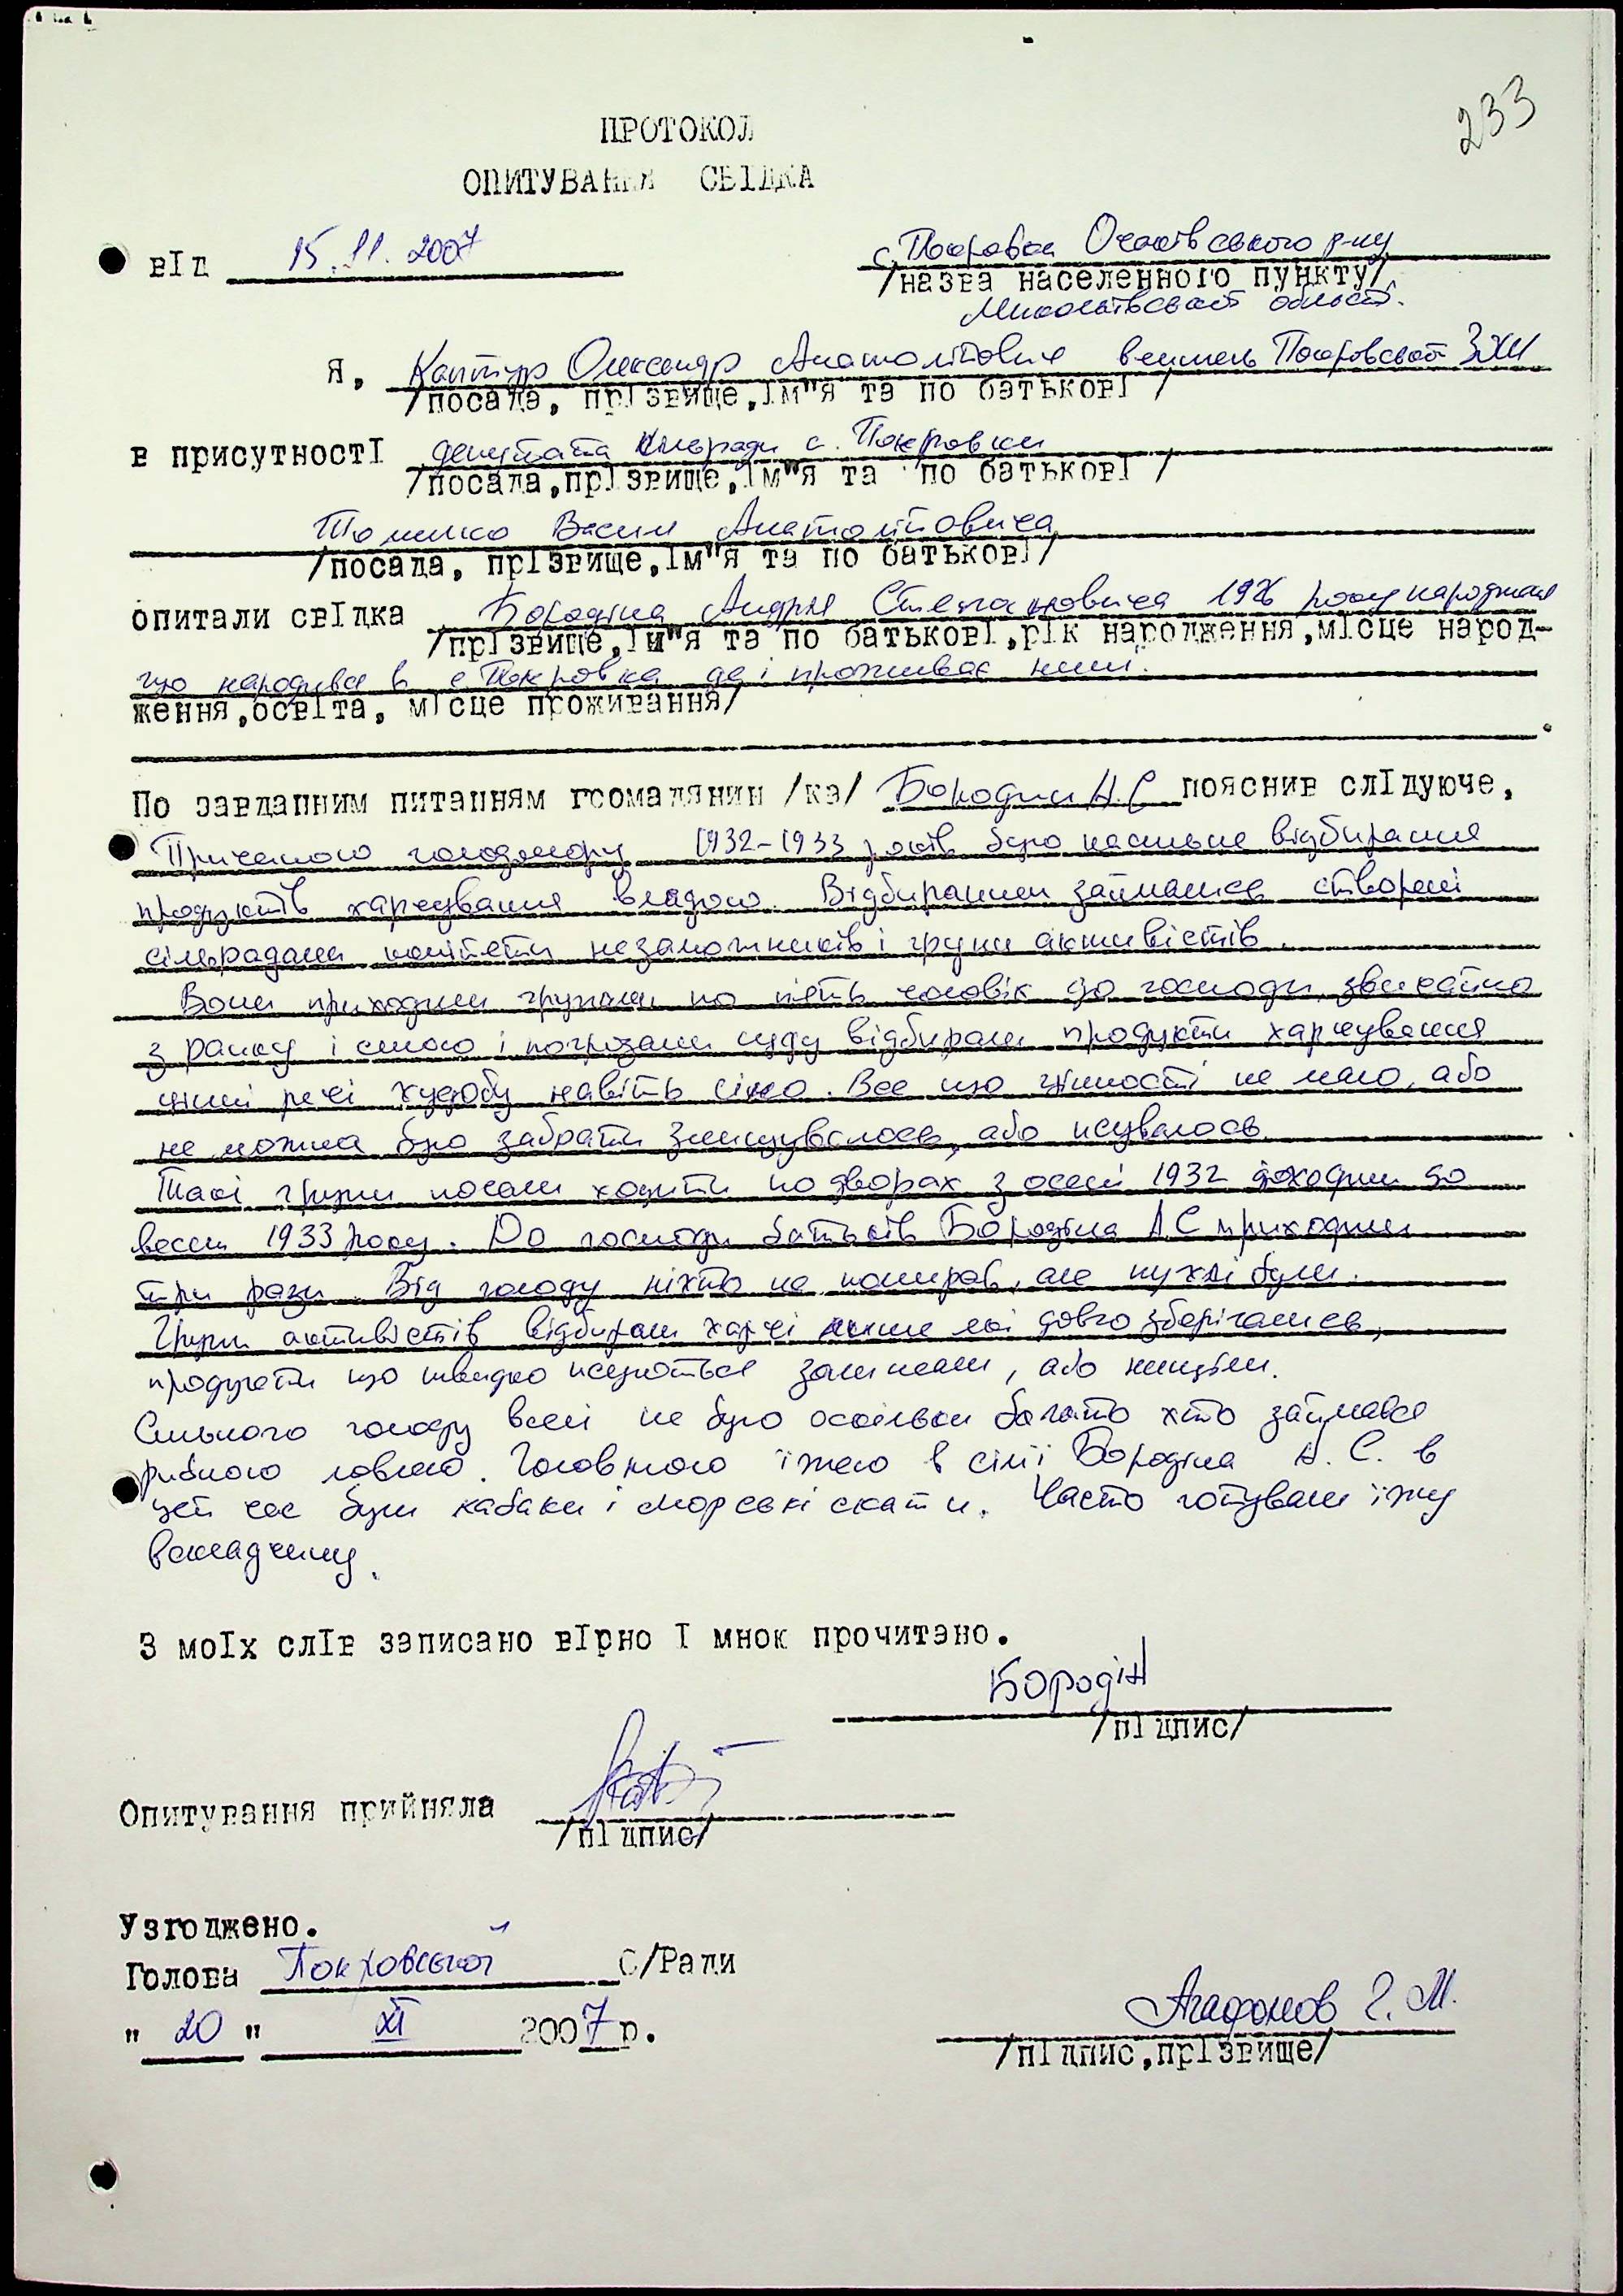 233
ПРОТОКОЛ
ОПИТУВАННЯ СВІДКА
вІд 15.11.2007 с. Покровка Очаківського р-ну
/назва населенного пункту/
Миколаївської області.
Я, Каптур Олександр Анатолійович вчитель Покровської ЗОШ
/посада, прІзвище,Ім"я та по батьковІ /
в присутностІ депутата сільради с. Покровки
/посада,прІзвище,Ім"я та по батьковІ /
Томилко Васил Анатолійовича
/посада, прІзвище,Ім"я та по батьковІ/
опитали свІдка Бородіна Андрія Степановича 1926 року народження
/прІзвище,Ім"я та по батьковІ,рІк народження,мІсце народ-
що народився в с Покровка де і проживає нині.
ження,освІта, мІсце проживання/
По завданним питанням громадянин /ка/ Бородін А.С пояснив слІдуюче,
Причиною голодомору 1932-1933 років було насильне відбирання
продуктів харчування владою. Відбиранням займались створені
сільрадами комітети незаможників і групи активістів.
Вони приходили групами по пять чоловік до господи, звичайно
з ранку і силою і погрозами суду відбирали продукти харчування
цінні речі худобу навіть сіно. Все що цінності не мало, або
не можна було забрати знищувалось, або псувалось.
Такі групи почали ходити по дворах з осені 1932 доходили до
весни 1933 року. До господи батьків Бородіна А.С приходили
три рази. Від голоду ніхто не помирав, але пухлі були.
Групи активістів відбирали харчі лише які довго зберігались,
продукти що швидко псуються залишали, або нищіли.
Сильного голоду в селі не було оскільки багато хто займався
рибною ловлею. Головною їжею в сімї Бородіна А. С. в
цей час були кабаки і морські скати. Часто готували їжу
вскладчину.
З моІх слІв записано вІрно І мнок прочитано.
Бородін
/пІдпис/
Опитування прийняла
/пІдпис/
Узгоджено.
Голова Покровської С/Ради
" 20 " XI 2007 р.
Агафонов Г. М.
/пІдпис,прІзвище/